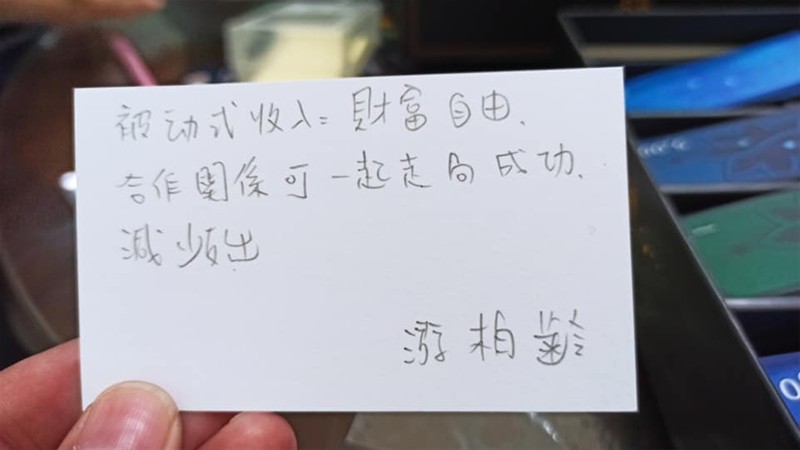 被动式收入=財富自由.
合作関係可一起走向成功.
減
游柏齡